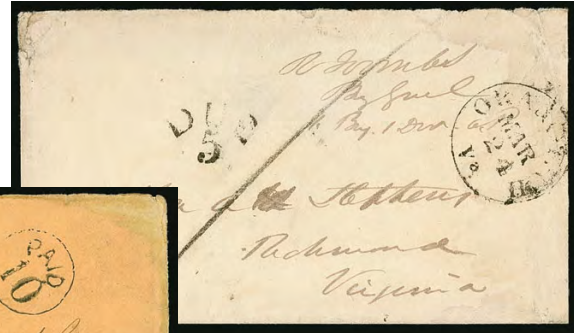 R Toombs
Brig Genl
1 Brig. 1 Div
DUE
5
ORANGE
MAR
24
Va
Stephens
Richmond
Virginia
PAID
10